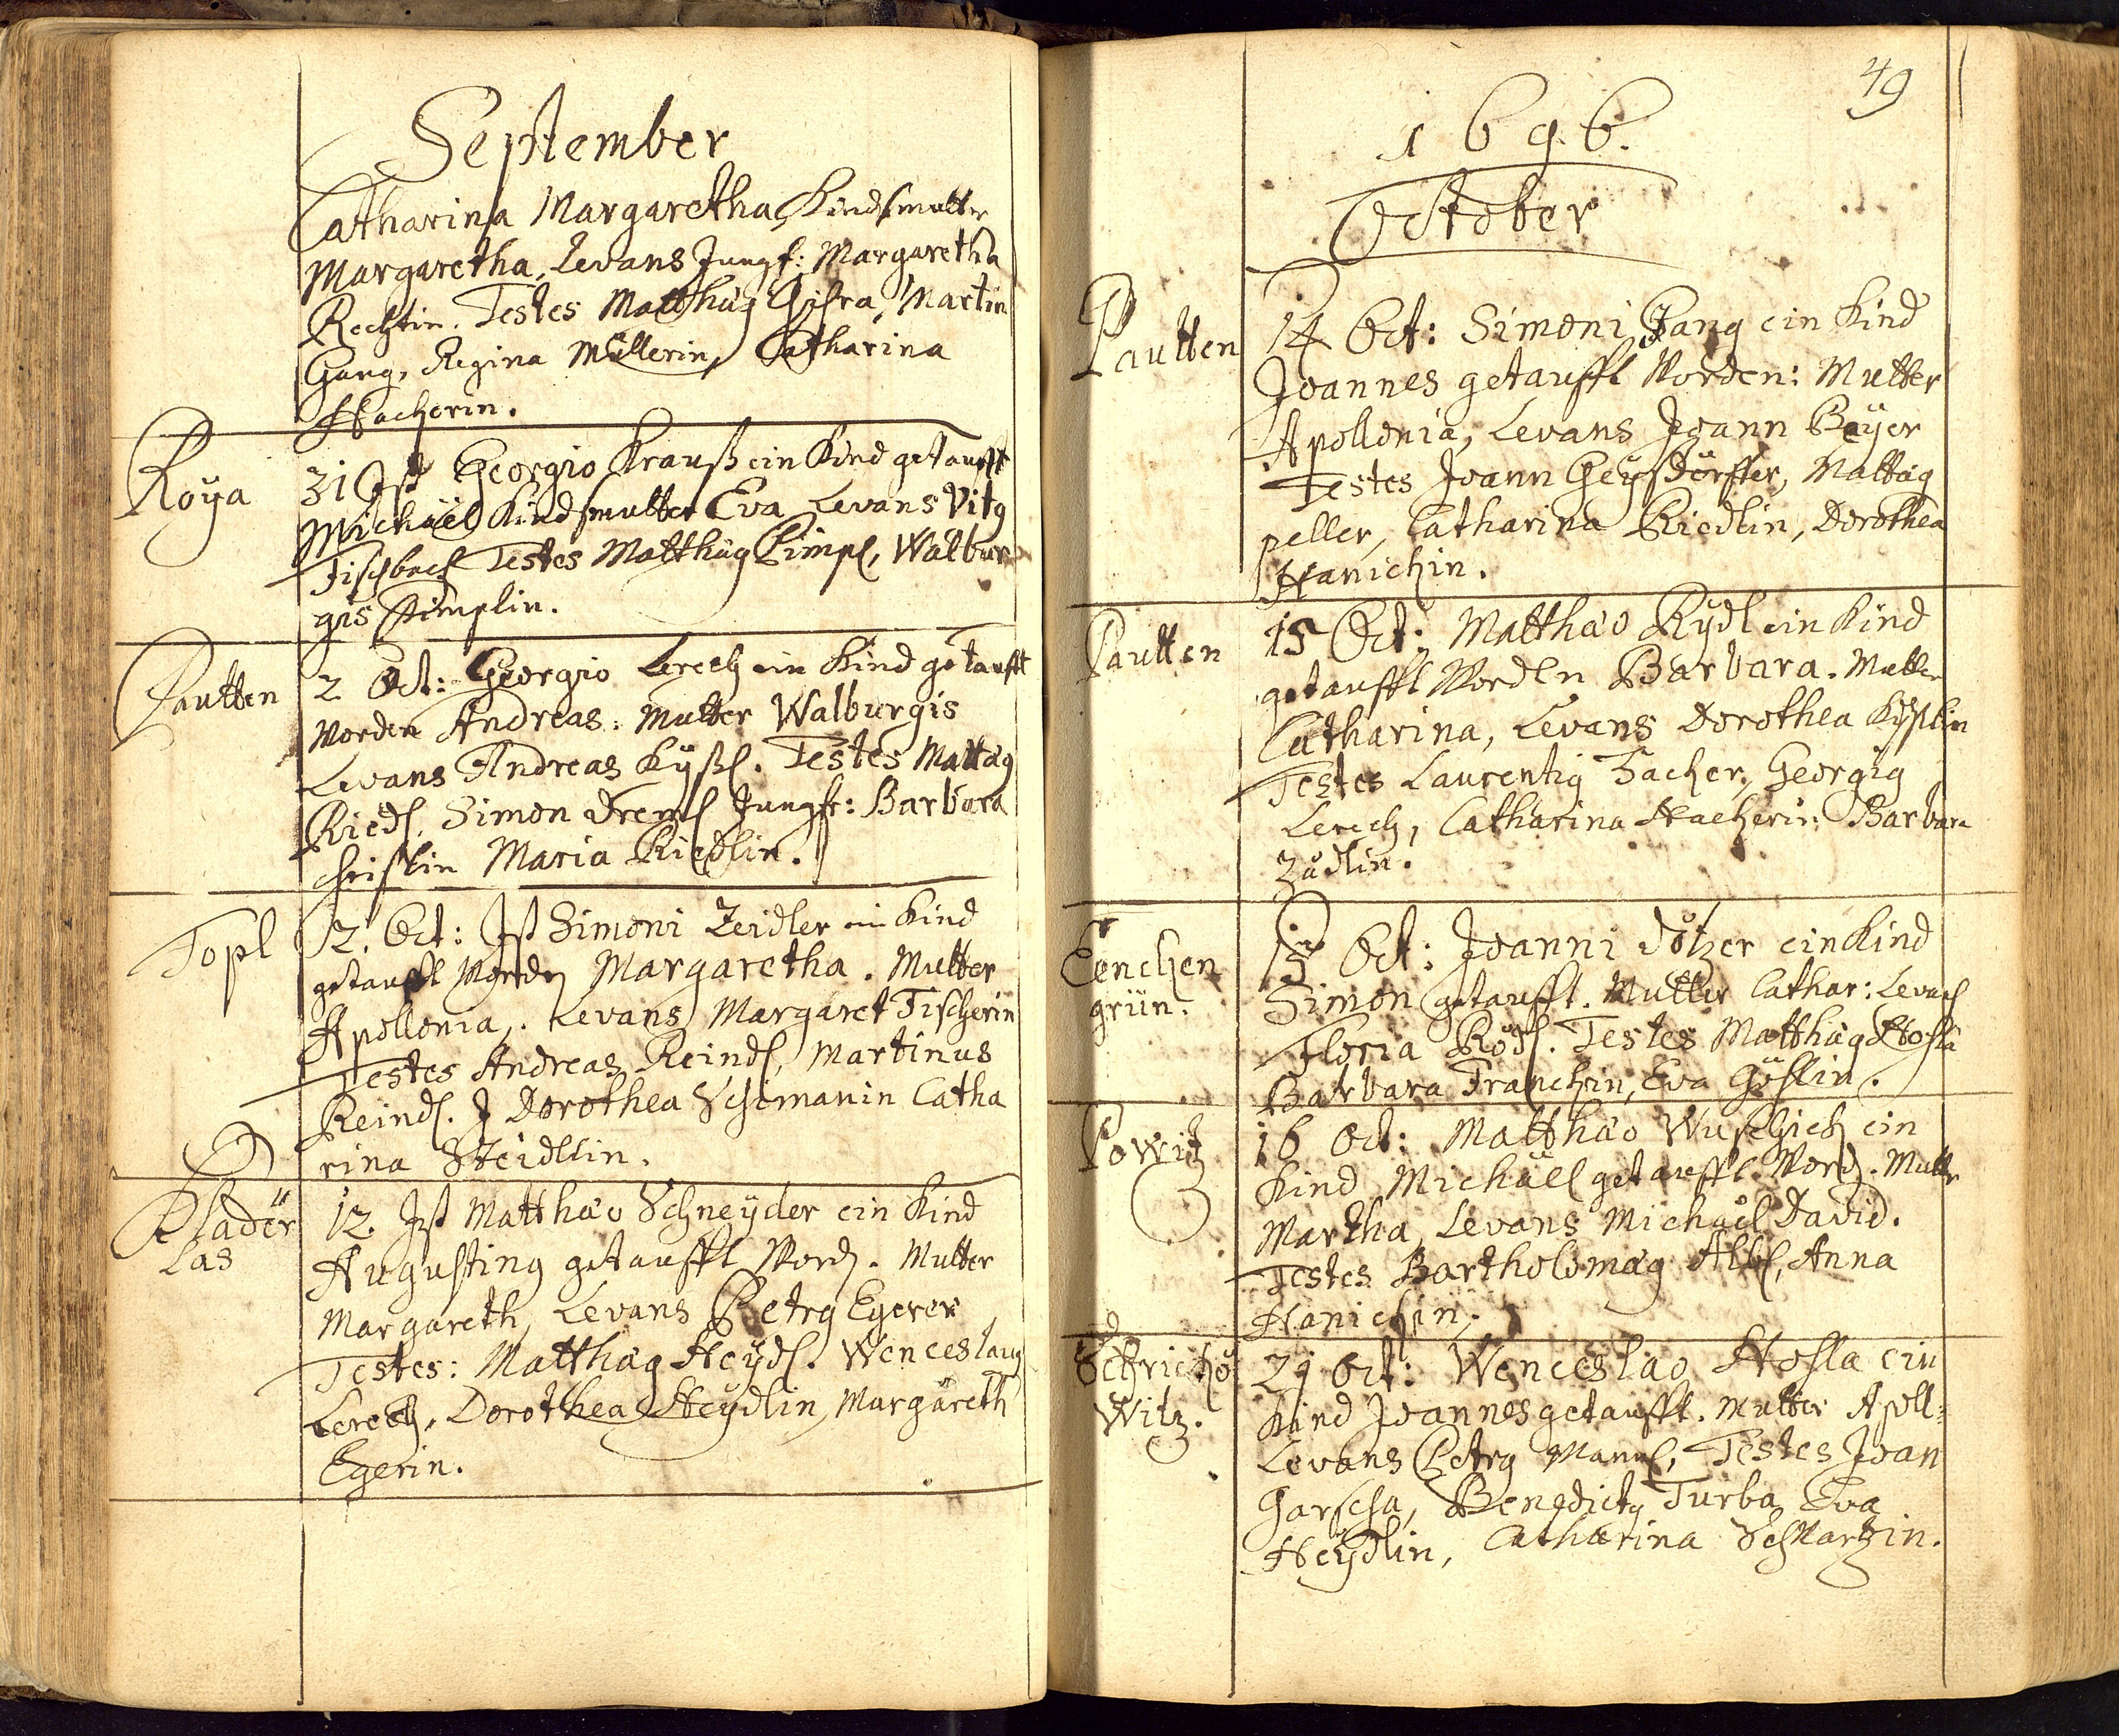 September
Catharina Margaretha, Kindsmutter
Margaretha, Levans Jungf: Margaretha
Rechtin. Testes Matthäg Martin
Gang, Regina Müllerin, Catharina
Hacherin.
Roÿa
31 Ist Georgio Krauß ein Kind getaufft
Michäel Kindsmutter Eva Levans Vitg
Fischbach Testes Matthäg Pimpl, Walbur
gis Pimplin.
Pautten
2 Oct: Georgio Lerch ein Kind getaufft
worden Andreas: Mutter Walburgis
Levans Andreas Kÿßl. Testes Mattäg
Riedl, Simon Dreml Jungfr: Barbara
Maria Riedlin.
Topl
12. Oct: Ist Simoni Zeidler ein Kind
getaufft worden Margaretha. Mutter
Apollonia, Levans Margaret Fischerin
Testes Andreas Reindl, Martinus
Reindl. Dorothea Schimanin Catha
rina Steidllin.
Kladër
las
12. Ist Matthäo Schneÿder ein Kind
Augusting getaufft word. Mutter
Margareth, Levans Petrg Egerer
Testes: Matthäg Heÿdl. Wenceslaug
Lerch, Dorothea Heÿdlin, Margareth
Egerin.
49
1696.
October
Pautten
14 Oct: Simoni Fang ein Kind
Joannes getaufft worden: Mutter
Apollonia, Levans Joann Beÿer
Testes Joann Geÿsdörffer, Mattäg
peller, Catharina Riedlin, Dorothea
Hanichin.
Pautten
15 Oct: Matthäo Rÿdl ein Kind
getaufft worden Barbara. Mutter
Catharina, Levans Dorothea Kÿßlin
Testes Laurentig Hacher, Georgig
Lerch, Catharina Hacherin Barbara
Züdlin.
Eenchen
grün.
15 Oct: Joanni Dötzer ein Kind
Simon getaufft. Mutter Cathar: Levans
Floria Rödl. Testes Matthäg Hosla
Barbara Franchin, Eva Göslin.
Powitz
16 Oct: Matthäo Wuschich ein
Kind Michäel getaufft word. Mutter
Martha, Levans Michäel David.
Testes Bartholomäg Albl, Anna
Hanichin.
Schricko
witz.
21 Oct: Wenceslao Hosla ein
Kind Joannes getaufft. Mutter Apoll:
Levans Petrg Manul, Testes Joan
Garscha, Benedictg Turba Eva
Heÿdlin, Catharina Schwartzin.